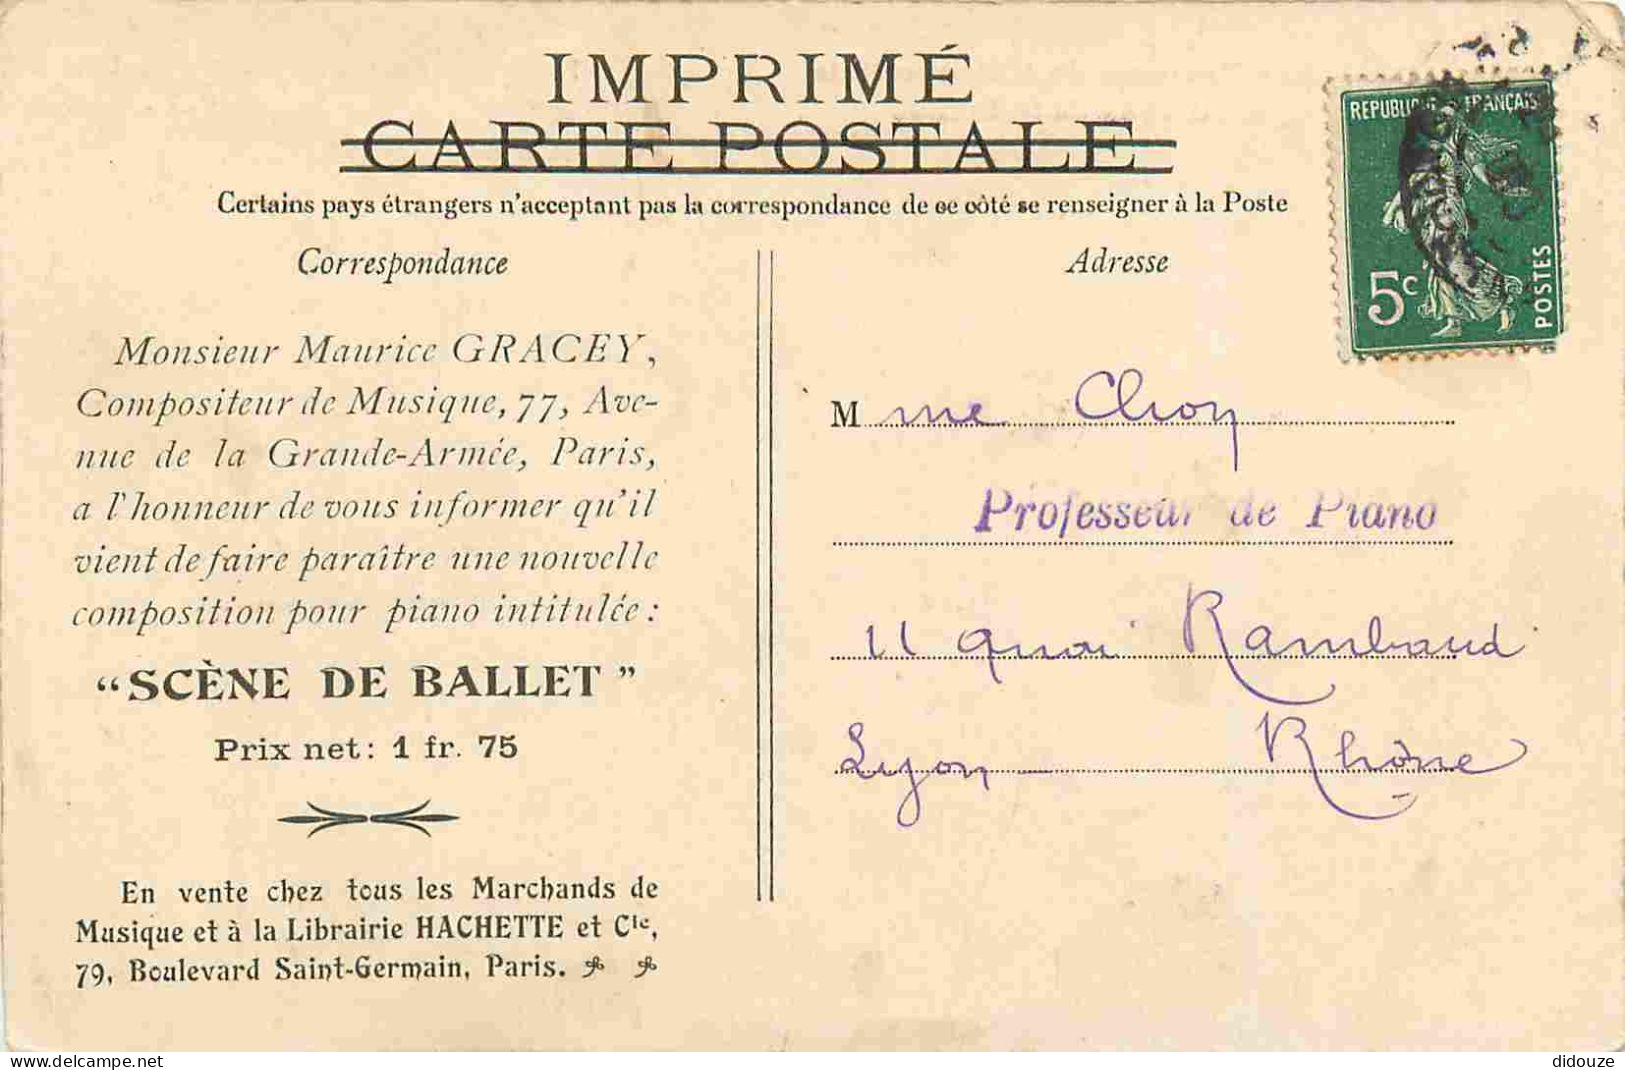 IMPRIMÉ
CARTE POSTALE
Certains pays étrangers n'acceptant pas la correspondance de ce côté se renseigner à la Poste
Correspondance
Monsieur Maurice GRACEY,
Compositeur de Musique, 77, Ave-
nue de la Grande-Armée, Paris,
a l'honneur de vous informer qu'il
vient de faire paraître une nouvelle
composition pour piano intitulée :
“SCÈNE DE BALLET”
Prix net : 1 fr. 75
En vente chez tous les Marchands de
Musique et à la Librairie HACHETTE et Cie,
79, Boulevard Saint-Germain, Paris.
REPUBLIQUE FRANÇAISE
5c
POSTES
Adresse
M me
Professeur de Piano
11 Quai Rambaud
Lyon - Rhône
didouze